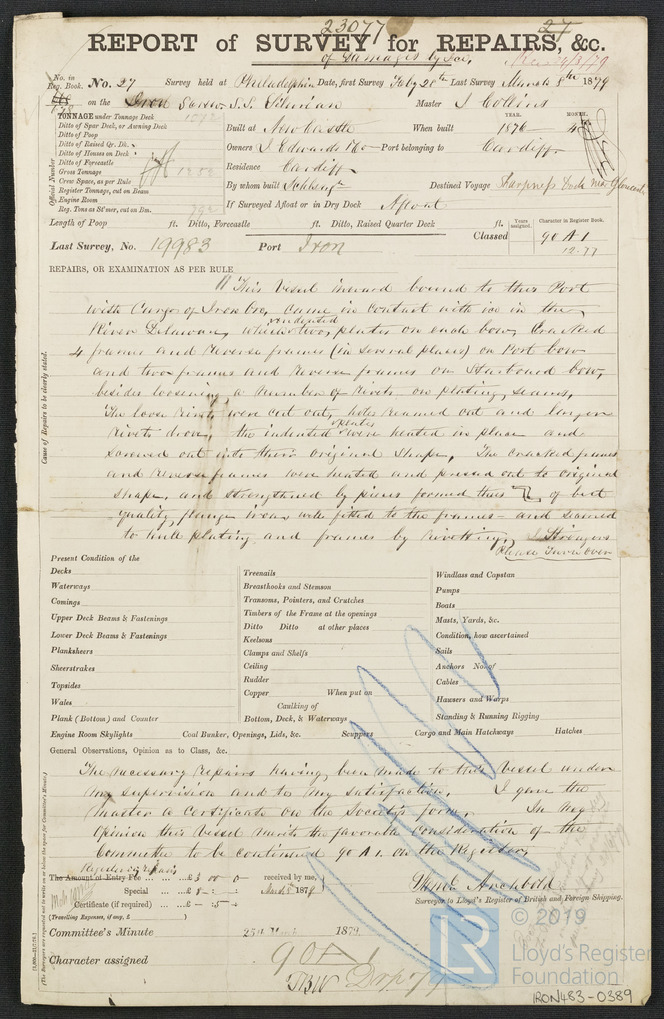 23077
27
REPORT of SURVEY for REPAIRS, &c.
of Damages by Ice,
No. in Reg. Book.
No. 27 Survey held at Philadelphia Date, first Survey Feby 28th Last Survey March 8th 1879
on the Iron Screw S.S. Master J Collins
TONNAGE under Tonnage Deck 1092
Ditto of Spar Deck, or Awning Deck
Ditto of Poop
Ditto of Raised Qr. Dk.
Ditto of Houses on Deck
Ditto of Forecastle
Gross Tonnage
Crew Space, as per Rule
Register Tonnage, cut on Beam
Engine Room
Reg. Tons as St'mer, cut on Bm.
Official Number
Built at Newcastle When built YEAR. 1876 MONTH. 4
Owners J Edwards & Co Port belonging to Cardiff
Residence Cardiff
By whom built Destined Voyage Sharpness Dock near Gloucester
If Surveyed Afloat or in Dry Dock Afloat
Length of Poop ft. Ditto, Forecastle ft. Ditto, Raised Quarter Deck ft.
Years assigned. Character in Register Book.
Classed 90 A 1
12.77
Last Survey, No. 19983 Port Iron
REPAIRS, OR EXAMINATION AS PER RULE
This Vessel inward bound to this Port
with Cargo of Iron Ore, came in contact with ice in the
River Delaware, which indented two plates on each bow, Cracked
4 frames and reverse frames (in several places) on Port bow
and two frames and reverse frames on Starboard bow,
besides loosening a number of rivets on plating seams,
The loose rivets were cut out, holes reamed out and larger
rivets drove, the indented plates were heated in place and
screwed out into their original shape, The cracked frames
and reverse frames were heated and pressed out to original
shape, and strengthened by pieces formed thus of best
quality flange iron well fitted to the frames and secured
to hull plating and frames by rivetting, 2 Stringers
Please Turn Over
Cause of Repairs to be clearly stated.
Present Condition of the
Decks
Waterways
Comings
Upper Deck Beams & Fastenings
Lower Deck Beams & Fastenings
Planksheers
Sheerstrakes
Topsides
Wales
Plank (Bottom) and Counter
Engine Room Skylights
Treenails
Breasthooks and Stemson
Transoms, Pointers, and Crutches
Timbers of the Frame at the openings
Ditto Ditto at other places
Keelsons
Clamps and Shelfs
Ceiling
Rudder
Copper When put on
Caulking of
Bottom, Deck, & Waterways
Coal Bunker, Openings, Lids, &c. Scuppers
Windlass and Capstan
Pumps
Boats
Masts, Yards, &c.
Condition, how ascertained
Sails
Anchors No. of
Cables
Hawsers and Warps
Standing & Running Rigging
Cargo and Main Hatchways Hatches
General Observations, Opinion as to Class, &c.
The necessary repairs having been made to this vessel under
my supervision and to my satisfaction, I gave the
Master a Certificate on the Society's form, In my
Opinion this vessel merits the favorable consideration of the
Committee to be continued 90 A 1. on the Register,
The Amount of Entry Fee ... £3 00 0 received by me,
Special ... £
Certificate (if required) ... £ - 5 -
(Travelling Expenses, if any, £ )
Archbold
Surveyor to Lloyd's Register of British and Foreign Shipping.
Committee's Minute 25th March 1879
Character assigned 90 A 1
© 2019
LR
Lloyd's Register
Foundation
IRON483-0389